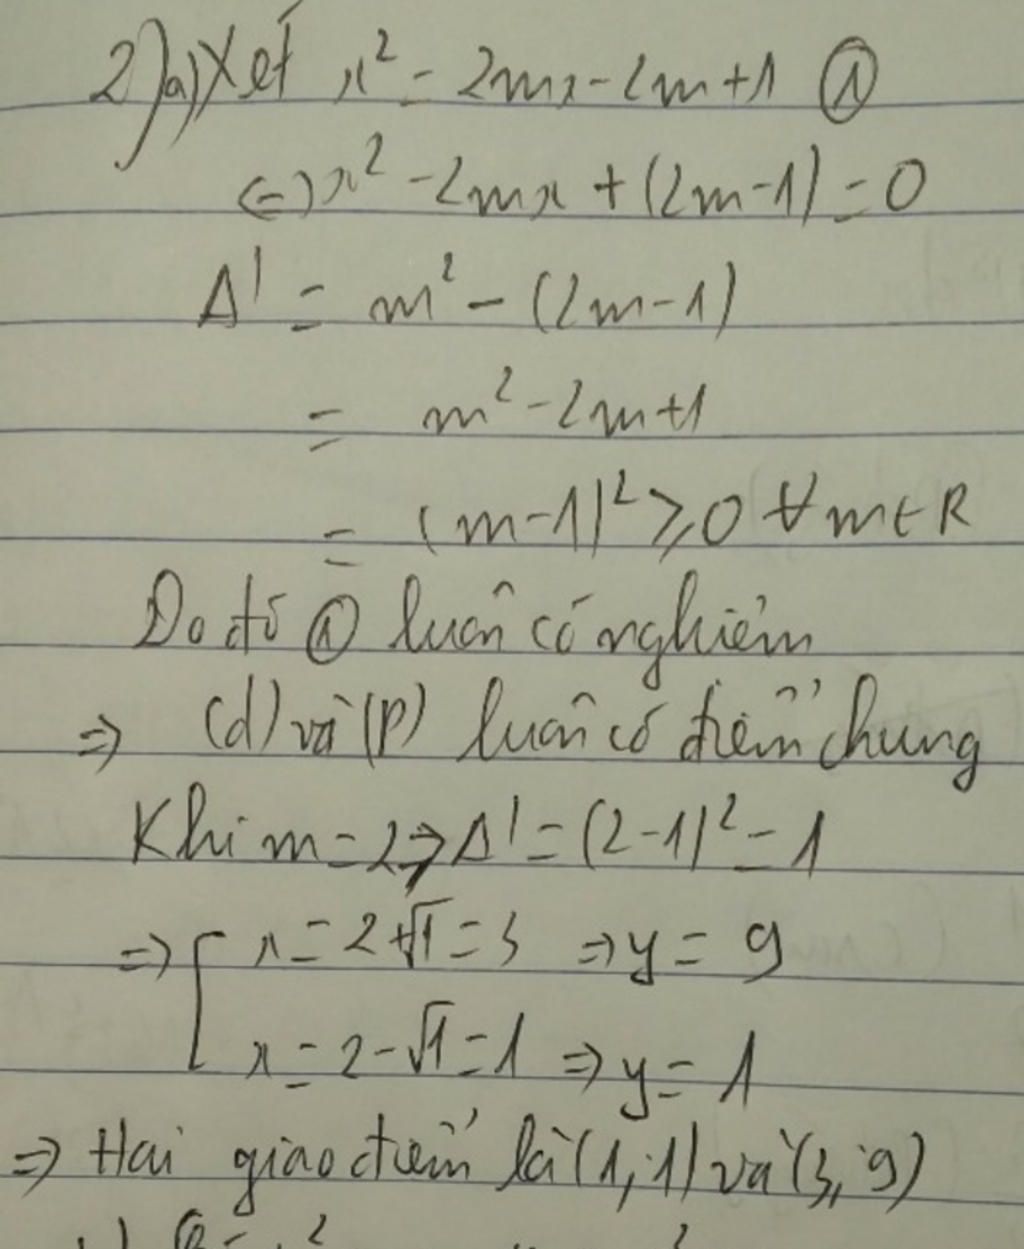 2)a) Xét x² = 2mx - 2m + 1 ①
(=) x² - 2mx + (2m-1) = 0
Δ' = m² - (2m-1)
= m² - 2m + 1
= (m-1)² ≥ 0 ∀ m ∈ R
Do đó ① luôn có nghiệm
=> (d) và (P) luôn có điểm chung
Khi m = 2 => Δ' = (2-1)² = 1
=> [ x = 2 + √1 = 3 => y = 9
x = 2 - √1 = 1 => y = 1
=> Hai giao điểm là (1, 1) và (3, 9)